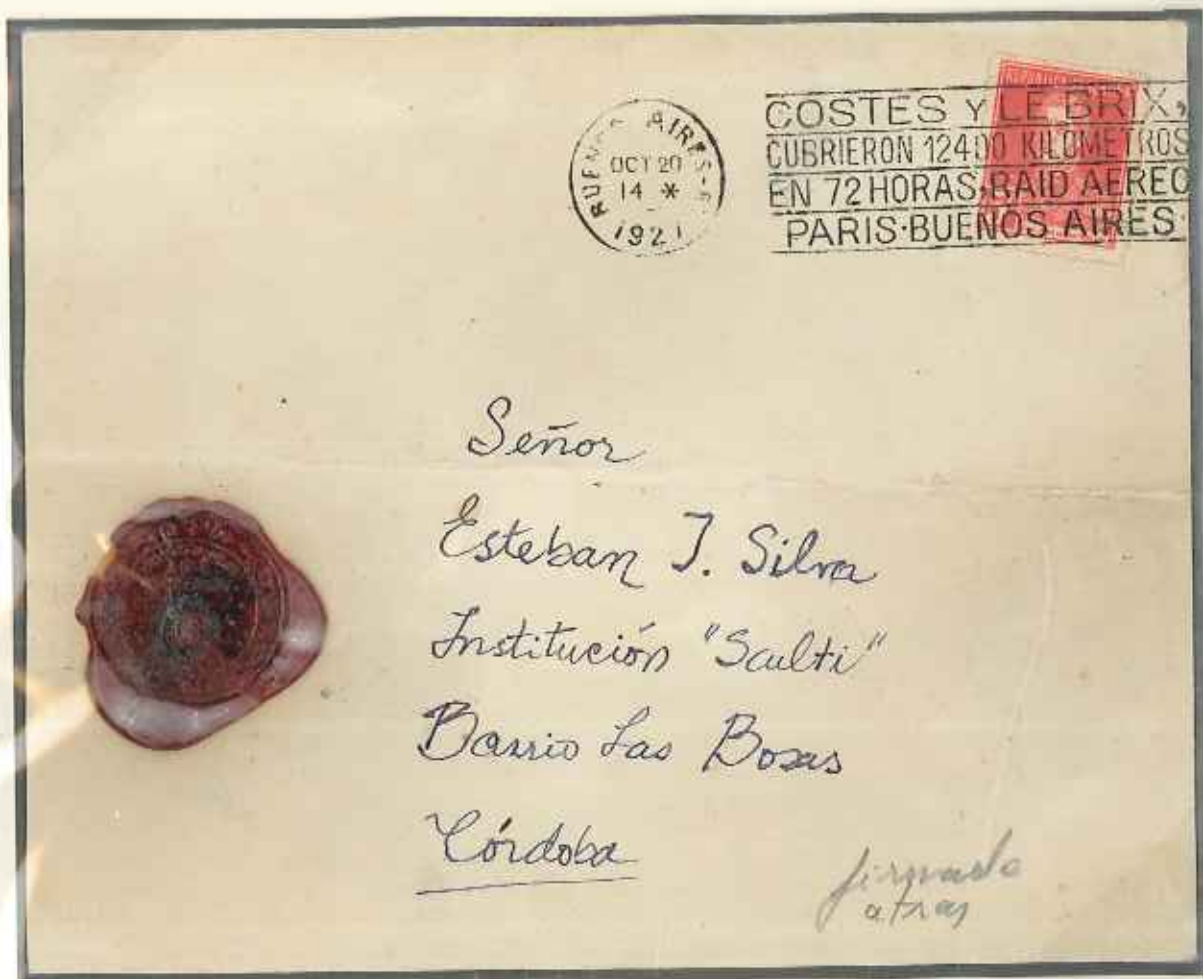 BUENOS AIRES
OCT 20
14 *
192
COSTES Y LE BRIX,
CUBRIERON 12400 KILOMETROS
EN 72 HORAS·RAID AEREO
PARIS·BUENOS AIRES·
Señor
Esteban J. Silva
Institución "Saulti"
Barrio Las Bosas
Córdoba
firmado
atras